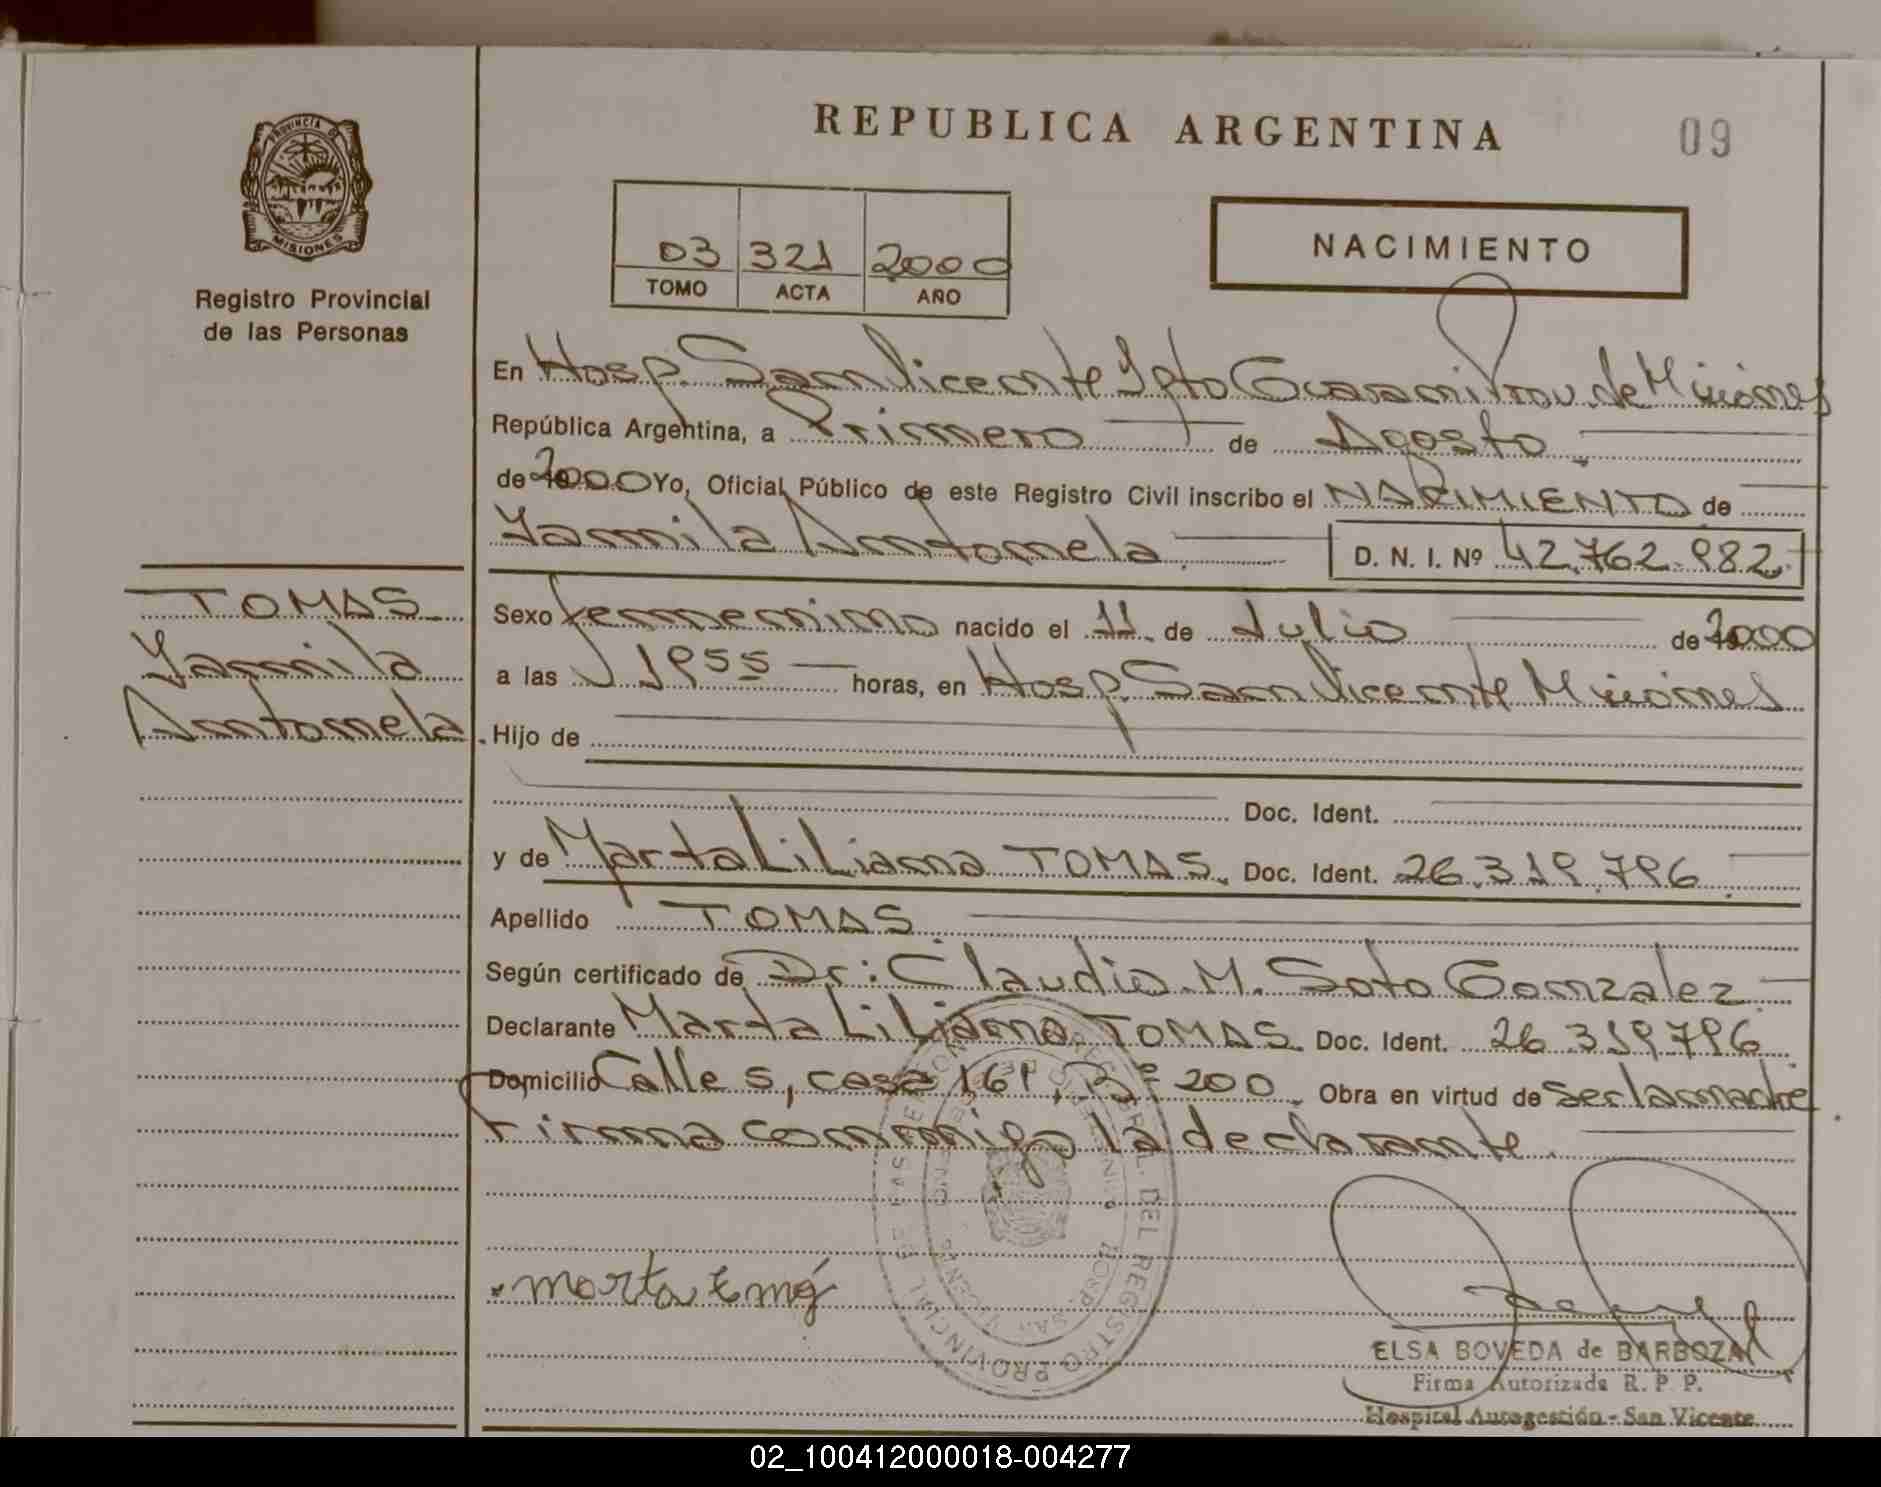 REPUBLICA ARGENTINA
09
PROVINCIA DE
MISIONES
Registro Provincial
de las Personas
03 321 2000
TOMO ACTA AÑO
NACIMIENTO
En Hosp. San Vicente Dpto Guarani Prov. de Misiones
República Argentina, a Primero de Agosto
de 2000 Yo, Oficial Público de este Registro Civil inscribo el NACIMIENTO de
Yamila Antonela D. N. I. Nº 42.762.982
TOMAS
Yamila
Antonela
Sexo femenino nacido el 11 de Julio de 2000
a las 1955 horas, en Hosp. San Vicente Misiones
Hijo de
Doc. Ident.
y de Marta Liliana TOMAS. Doc. Ident. 26.319.796
Apellido TOMAS
Según certificado de Dr: Claudio M. Soto Gonzalez
Declarante Marta Liliana TOMAS Doc. Ident. 26 319796
Domicilio Calle 5, casa 161, Bº 200 Obra en virtud de ser la madre
Firma conmigo la declarante.
marta
ELSA BOVEDA de BARBOZA
Firma Autorizada R. P. P.
Hospital Autogestión - San Vicente
02_100412000018-004277